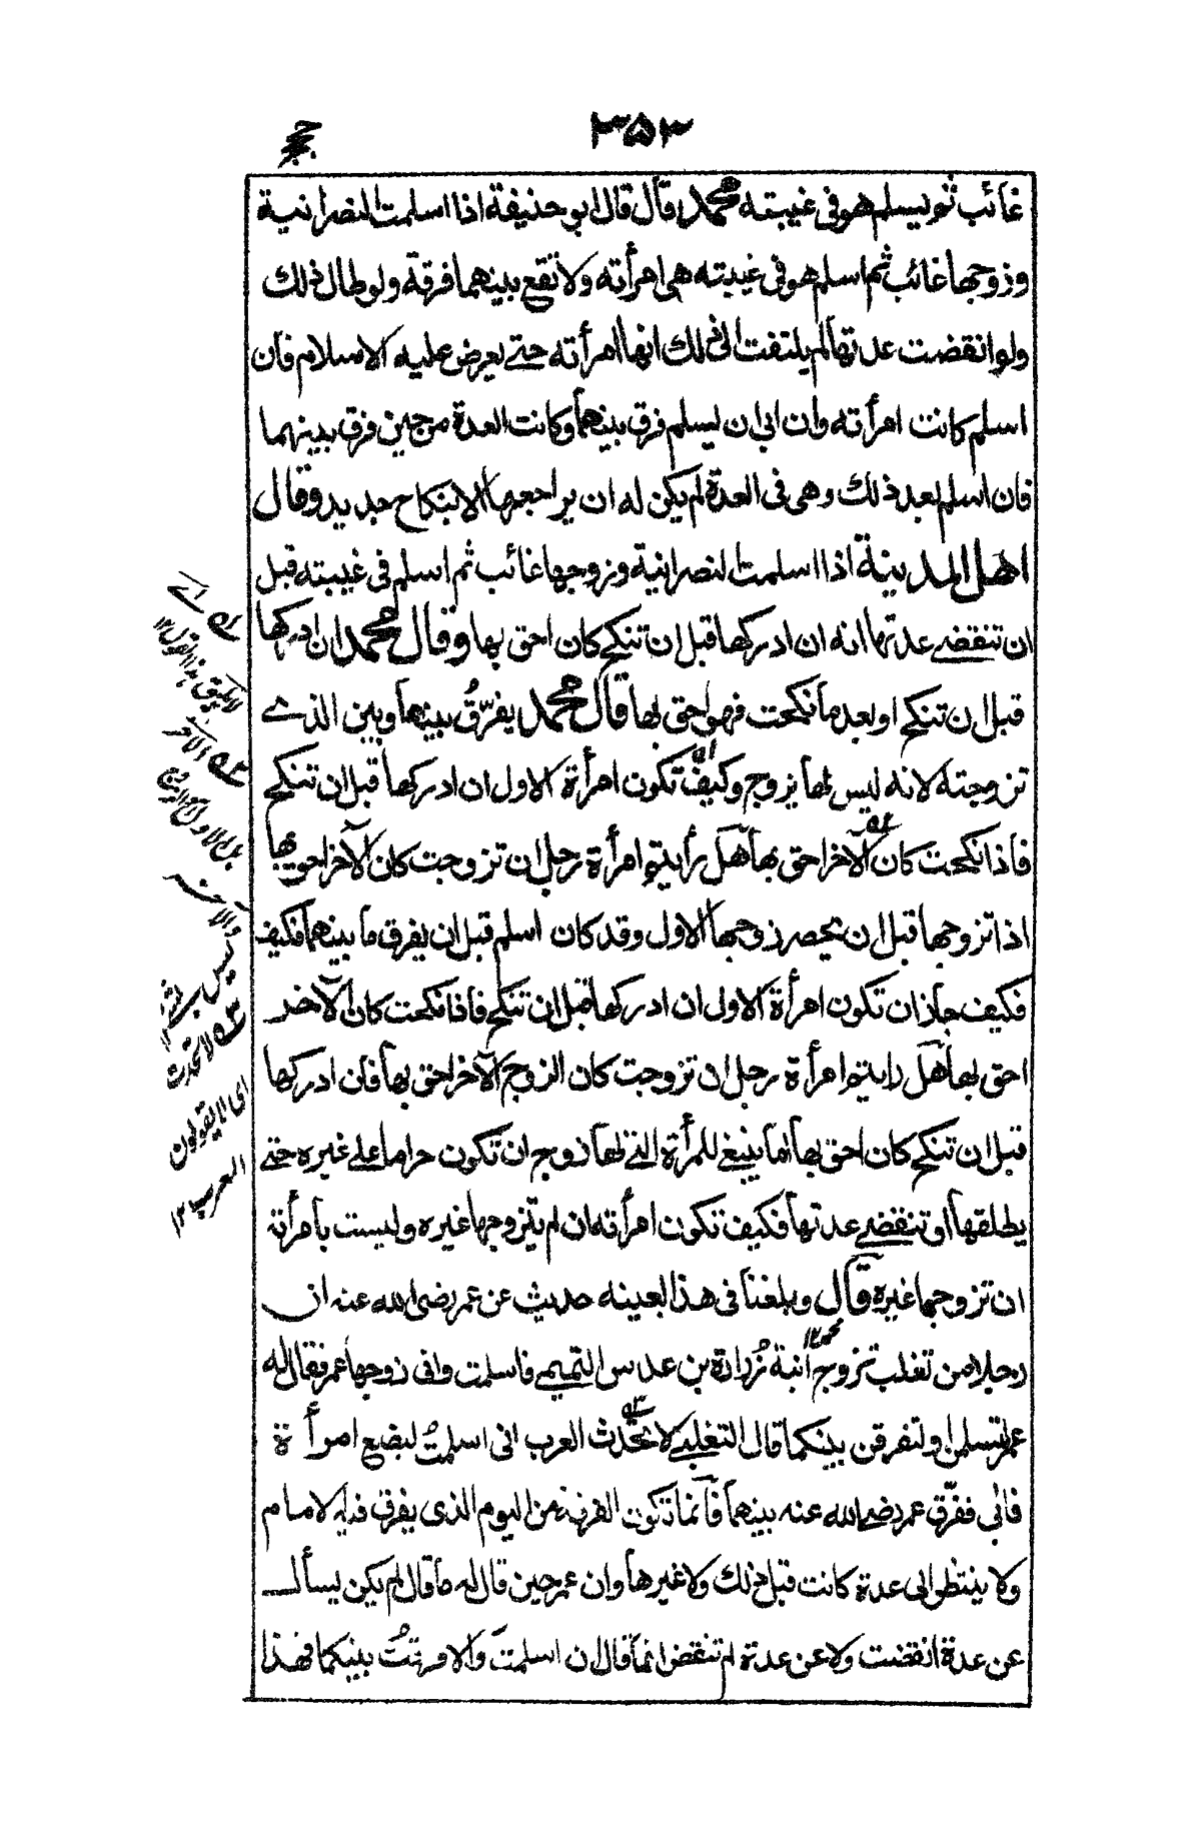 ٣٥٣
حجج
غائب ثم يسلم هو فى غيبته محمد، قال قال ابو حنيفة اذا اسلمت النصرانية
وزوجها غائب ثم اسلم هو فى غيبته هى امرأته ولا تقع بينهما فرقة ولو طال ذلك
ولو انقضت عدتها لم يلتفت الى ذلك انها امرأته حتے يعرض عليه الاسلام فان
اسلم كانت امرأته وان ابى ان يسلم فرق بينهما وكانت العدة من حين فرق بينهما
فان اسلم بعد ذلك وهى فى العدة لم يكن له ان يراجعها الا بنكاح جديد وقال
اهل المدينة اذا اسلمت النصرانية وزوجها غائب ثم اسلم فى غيبته قبل
ان تنقضے عدتها انه ان ادركها قبل ان تنكح كان احق بها وقال محمد ان ادركها
قبل ان تنكح او بعد ما نكحت فهو احق بها قال محمد يفرّقُ بينهما وبين الذے
تزوجته لانه ليس لها بزوج وكيف تكون امرأة الاول ان ادركها قبل ان تنكح
فاذا نكحت كان الآخر احق بها هل رأيتم امرأة رجل ان تزوجت كان الآخر احق بها
اذا تزوجها قبل ان يحصر زوجها الاول وقد كان اسلم قبل ان يفرق ما بينهما فكيف
فكيف جاز ان تكون امرأة الاول ان ادركها قبل ان تنكح فاذا نكحت كان الآخر
احق بها هل رايتم امرأة رجل ان تزوجت كان الزوج الآخر احق بها فان ادركها
قبل ان تنكح كان احق بها انما ينبغے للمرأة التے لها زوج ان تكون حراما علے غيره حتے
يطلقها او تنقضے عدتها فكيف تكون امرأته ان لم يتزوجها غيره وليست بامرأته
ان تزوجها غيره قال وبلغنا فى هذا بعينه حديث عن عمر رضى الله عنه ان
رجلا من تغلب تزوج ابنة زُرارة بن عدس التميمے فاسلمت واتى زوجها عمر فقال له
عمر لتسلمن او لتفرقن بينكما قال التغلبے لا تحدث العرب انى اسلمتُ لبضع امرأة
فابى ففرّق عمر رضى الله عنه بينهما فانما تكون الفرقة من اليوم الذى يفرق فيه الامام
ولا ينتظر الى عدة كانت قبل ذلك ولا غيرها وان عمر حين قال له ما قال لم يكن يسأل
عن عدة انقضت ولا عن عدة لم تنقض انما قال ان اسلمتَ والا فرقتُ بينكما فهذا
لا يليق هذا القول ١٢
والآخر
ليس بشئ
لا تحدث
اى لا يقولون
العرب ١٢